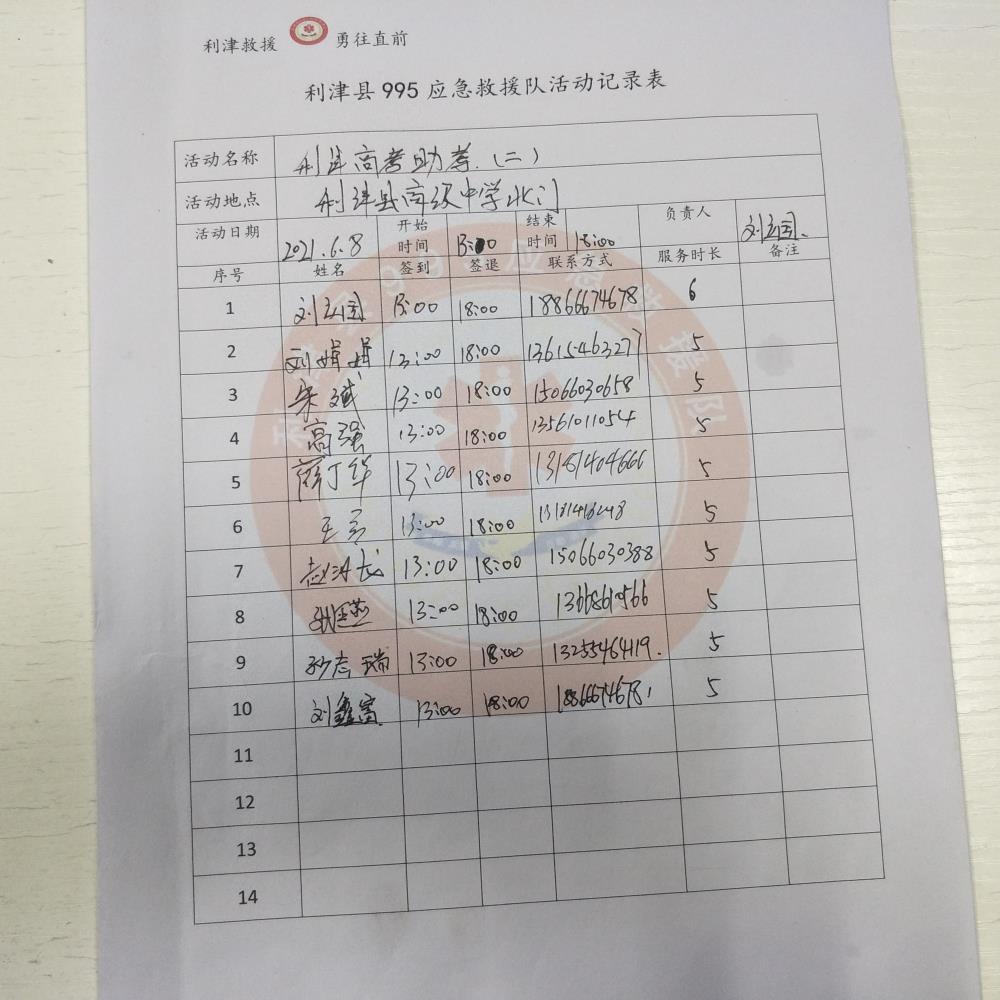 利津救援 勇往直前
利津县 995 应急救援队活动记录表
活动名称 利津高考助考（二）
活动地点 利津县高级中学北门
活动日期 2021.6.8 开始时间 结束时间 18:00 负责人 刘立国
序号 姓名 签到 签退 联系方式 服务时长 备注
1 刘立国 13:00 18:00 18866674678 6
2 刘娟娟 13:00 18:00 13615463277 5
3 宋斌 13:00 18:00 15066030658 5
4 高强 13:00 18:00 13561011054 5
5 薛丁华 13:00 18:00 13181404666 5
6 13:00 18:00 5
7 赵沛龙 13:00 18:00 15066030388 5
8 13:00 18:00 5
9 孙志瑞 13:00 18:00 13255464119. 5
10 刘鑫富 13:00 18:00 18866674678 5
11
12
13
14